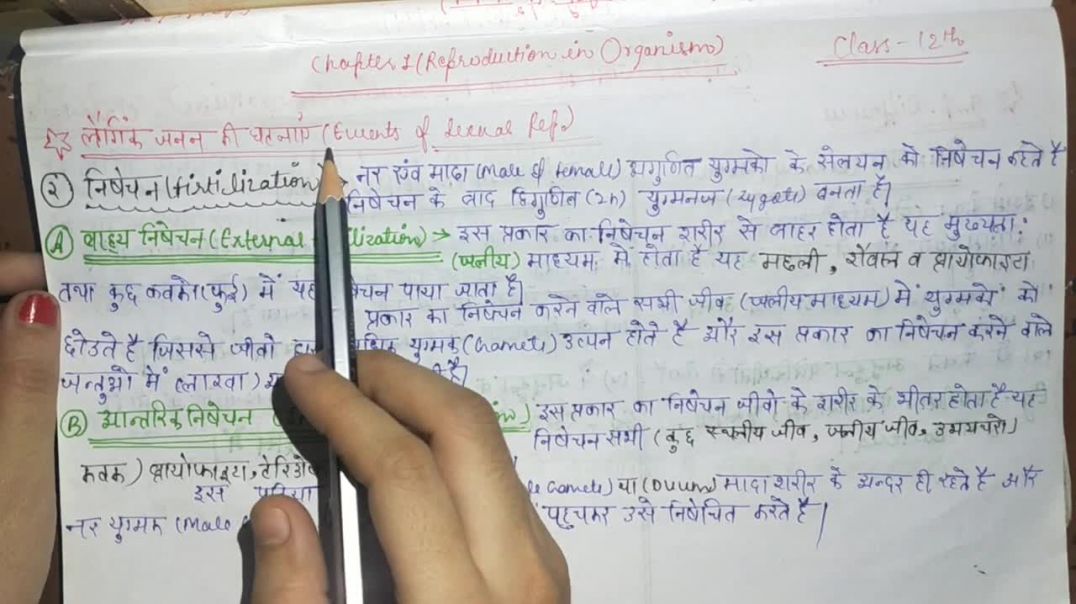 Chapter 1 (Reproduction in Organism)
Class - 12th
लैंगिक जनन की घटनाएं (Events of Sexual Rep.)
२ निषेचन (Firtilization) → नर एंव माद्या (Male & Female) अगुणित युग्मको के संलयन को निषेचन कहते है
निषेचन के बाद द्विगुणित (2n) युग्मनज (zygote) बनता है।
A बाह्य निषेचन (External ilization) → इस प्रकार का निषेचन शरीर से बाहर होता है यह मुख्यता:
(जलीय) माध्यम में होता है यह मछली, शैवाल व ब्रायोफाइटा
तथा कुछ कवको (फुई) में यह चन पाया जाता है।
प्रकार का निषेचन करने वाले सभी जीव (जलीय माध्यम) में युग्मकों को
छोडते है जिससे जीवो युग्मक (Gamete) उत्पन होते है और इस प्रकार का निषेचन करने वाले
जन्तुओ में (लारवा) है।
B आन्तरिक निषेचन इस प्रकार का निषेचन जीवो के शरीर के भीतर होता है यह
निषेचन सभी (कुछ स्थलीय जीव, जलीय जीव, उभयचरो)
कवक) ब्रायोफाइटा,
इस Gamete) या (Ovum) मादा शरीर के अन्दर ही रहते है और
नर युग्मक (Male पहुचकर उसे निषेचित करते है|